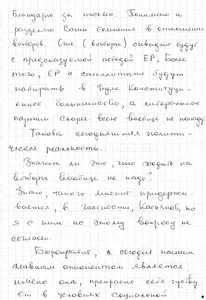 Благодарю за письмо. Понимаю и
разделяю Ваши сомнения в отношении
выборов. Они (выборы) очевидно будут
с предсказуемой победой ЕР. Более
того, ЕР с сателлитами будут
набирать в Думе конституци-
онное большинство, а либеральные
партии скорее всего вообще не попадут
Такова сегодняшняя полити-
ческая реальность.
Значит ли это, что ходить на
выборы вообще не надо?
Знаю, такого мнения придержи-
вается, в частности, Касьянов, но
я с ним по этому вопросу не
согласен.
Бюрократия, а сегодня нашим
главным оппонентом является
именно она, прекрасно себя чувству-
ет в условиях социальной